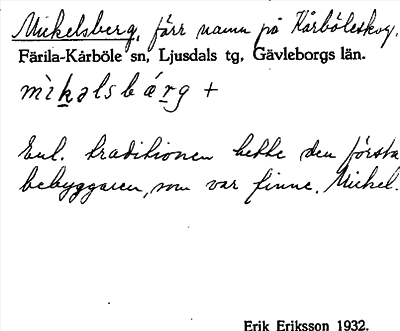 Mickelsberg, förr namn på Kårböleskog.
Färila-Kårböle sn, Ljusdals tg, Gävleborgs län.
mìkəlsbárg +
Enl. traditionen hette den första
bebyggaren, som var finne, Mickel.
Erik Eriksson 1932.